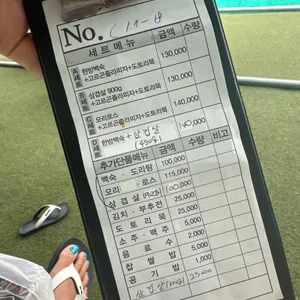 No.
세트메뉴 금액 수량
A세트 한방백숙
+고르곤졸라피자+도토리묵 130,000
B세트 삼겹살 900g
+고르곤졸라피자+도토리묵 130,000
C세트 오리로스
+고르곤졸라피자+도토리묵 140,000
D세트 한방백숙+삼겹살
(450g) 140,000
추가단품메뉴 금액 수량 비고
백숙 · 도리탕 100,000
오리 · 로스 115,000
삼겹살 100,000
김치 · 부추전 25,000
도토리묵 25,000
소주 · 맥주 5,000
음료수 2,000
찹쌀밥 5,000
공기밥 1,000
삼겹살 25000